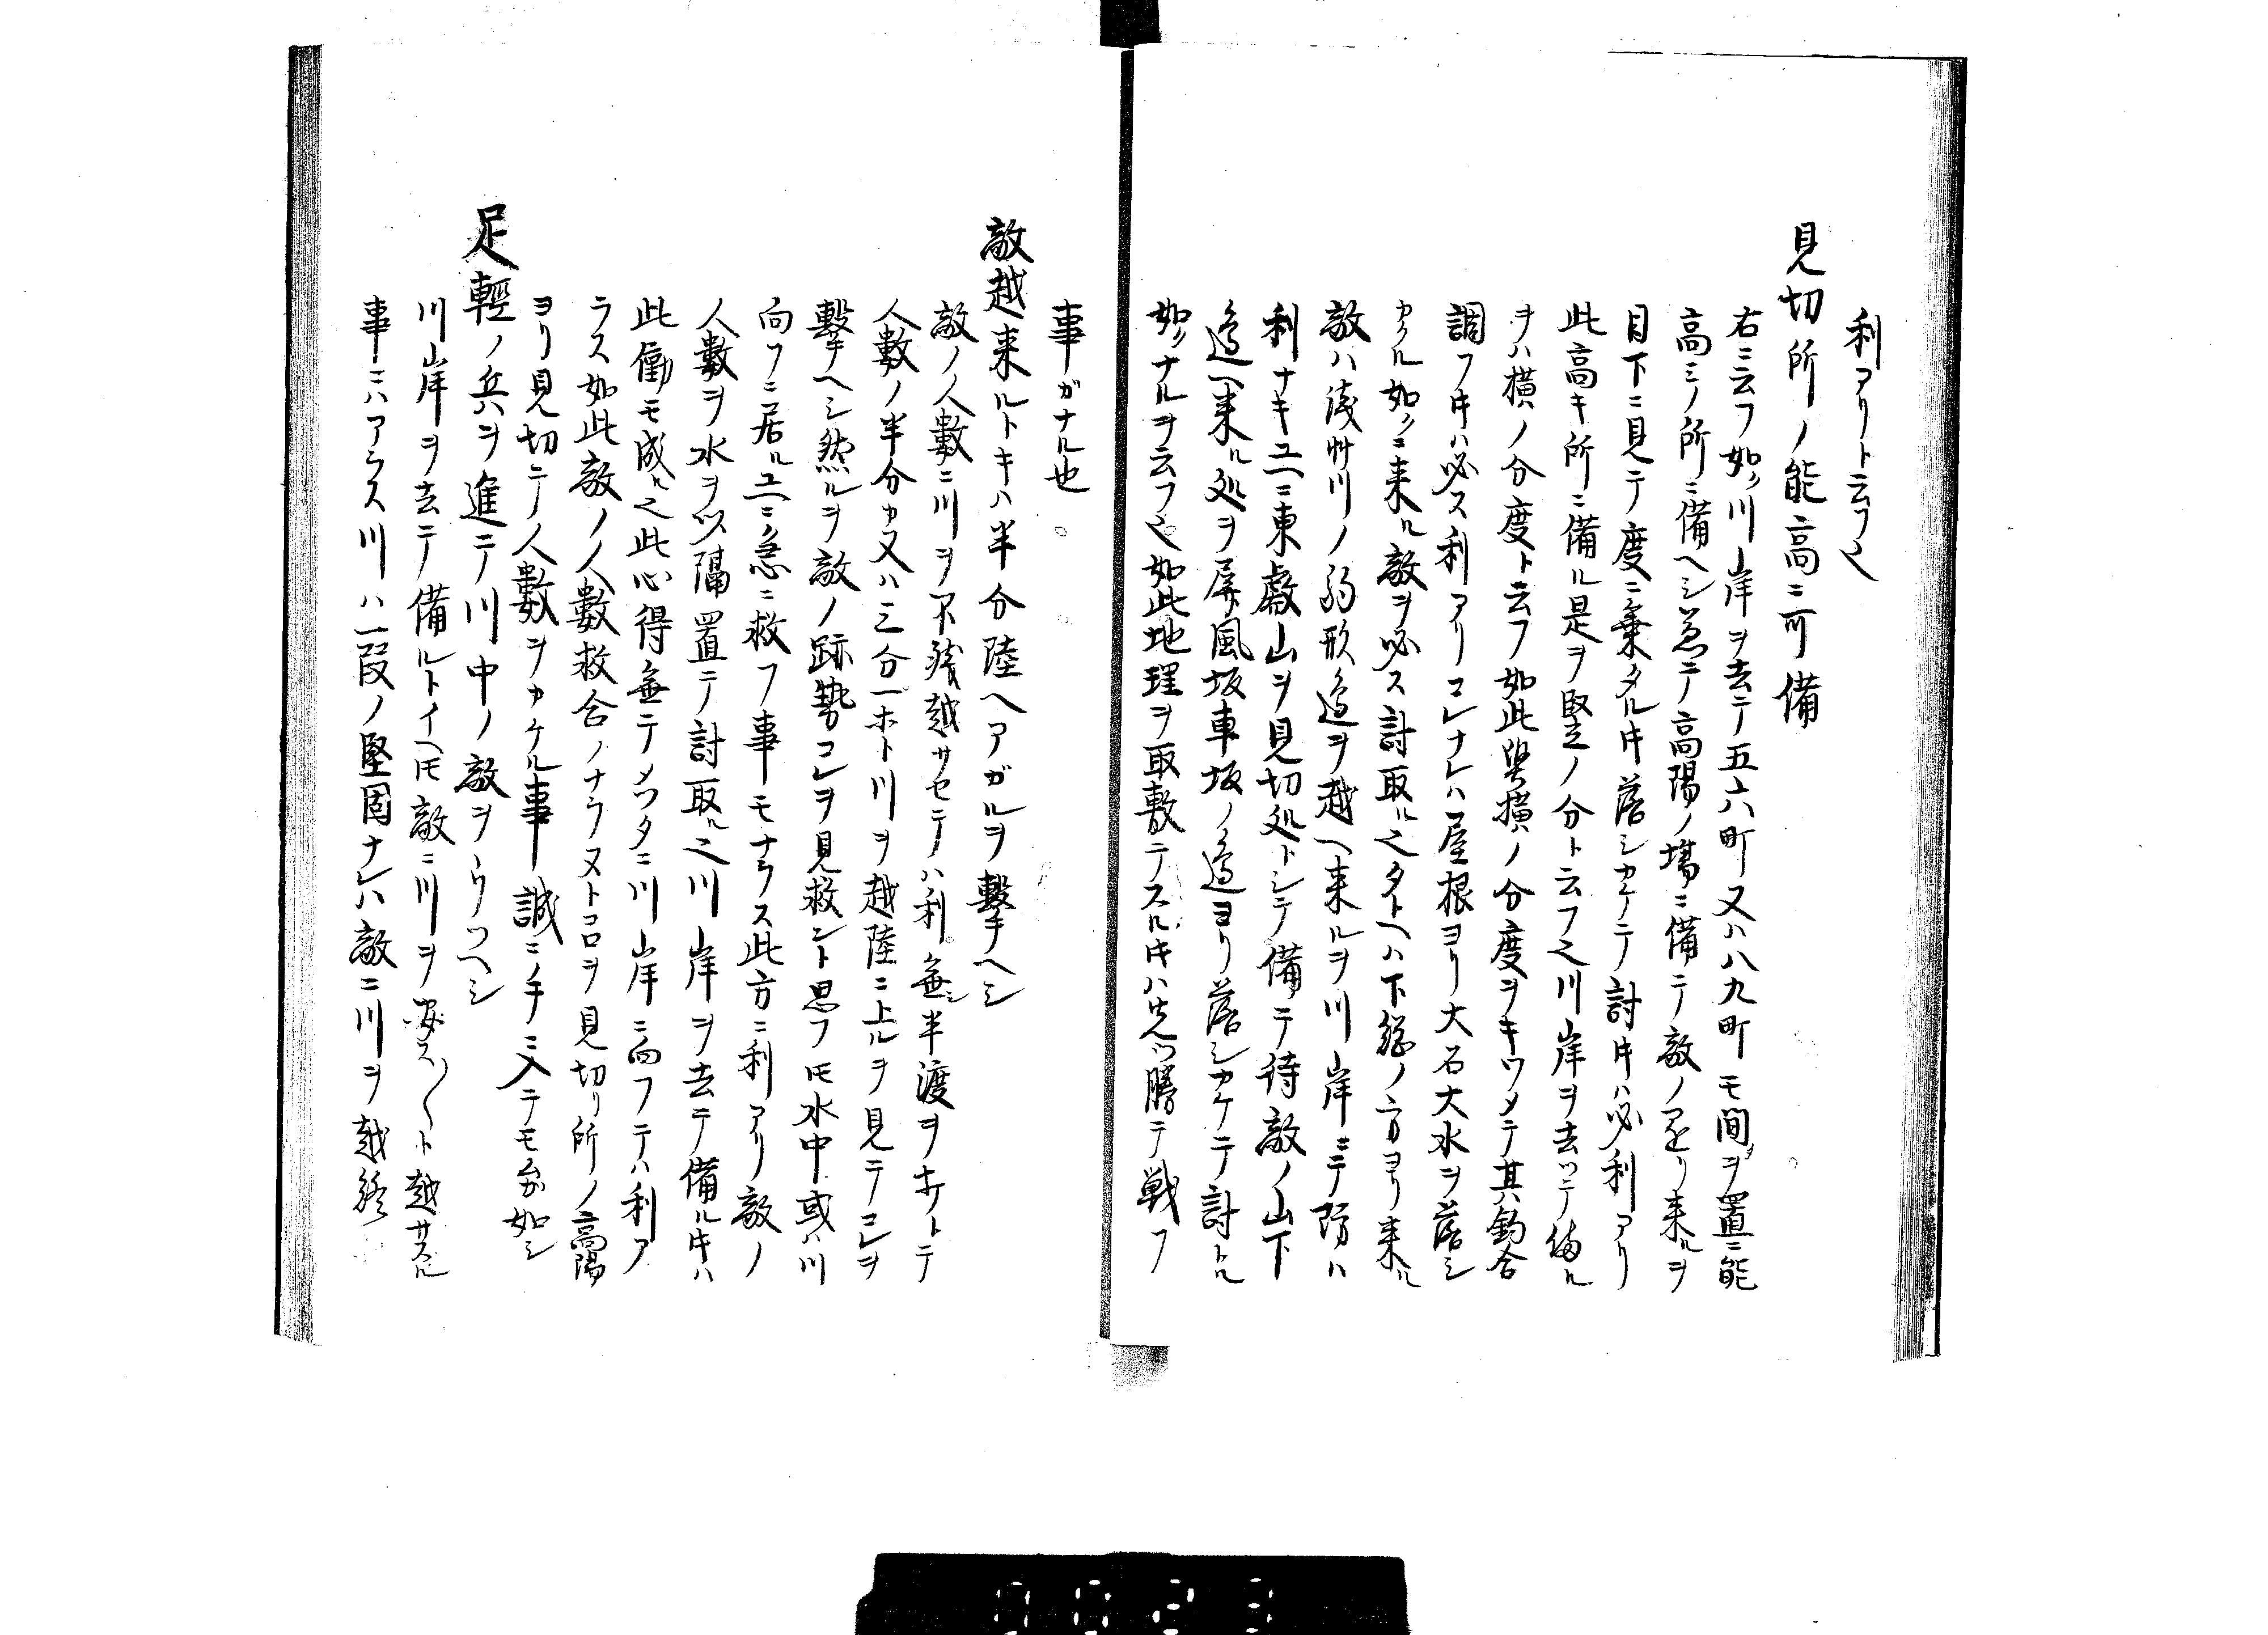 利アリト云フ也
見切所ノ能高ニ可備
右ニ云フ如ク川岸ヲ去テ五六町又ハ八九町モ間ヲ置ニ能
高ミノ所ニ備ヘシ惣テ高陽ノ場ニ備テ敵ノ来ルヲ
目下ニ見テ度ニ乗タル片落シカケテ討片ハ必利アリ
此高キ所ニ備ル是ヲ竪ノ分ト云フ也川岸ヲ去ツテ備ル
ヲハ横ノ分度ト云フ如此竪横ノ分度ヲキワメテ其釣合
調フ片ハ必ス利アリコレナレハ屋根ヨリ大石大水ヲ落シ
カクル如クニ来ル敵ヲ必ス討取ル也タトヘハ下総ノ方ヨリ来ル
敵ハ浅艸川ノ形邊ヲ越ヘ来ルヲ川岸ニテ防ハ
利ナキユヘニ東叡山ヲ見切処トシテ備テ待敵ノ山下
邊ヘ来ル処ヲ屏風坂車坂ノ邊ヨリ落シカケテ討トル
如クナルヲ云フ也如此地理ヲ取敷テスル片ハ先ツ勝テ戦フ
事ガナル也
敵越来ルトキハ半分陸ヘアガルヲ撃ヘシ
敵ノ人數ニ川ヲ不残越サセテハ利無シ半渡ヲ
人數ノ半分カ又ハ三分一ホト川ヲ越陸ニ上ルヲ見テコレヲ
撃ヘシ然ルヲ敵ノ跡勢コレヲ見救ント思フ㪽水中或ハ川
向フニ居ルユヘニ急ニ救フ事モナラス此方ニ利アリ敵ノ
人數ヲ水ヲ以隔置テ討取ル也川岸ヲ去テ備ル片ハ
此働モ成ル也此心得無テメツタニ川岸ニ向フテハ利ア
ラス如此敵ノ人數救合ノナラヌトコロヲ見切リ所ノ高陽
ヨリ見切テ人數ヲカケル事誠ニ手ニ入テモ如シ
足輕ノ兵ヲ進テ川中ノ敵ヲウツヘシ
川岸ヲ去テ備ルトイヘ㪽敵ニ川ヲ安ス〱ト越サスル
事ニハアラス川ハ一段ノ堅固ナレハ敵ニ川ヲ越